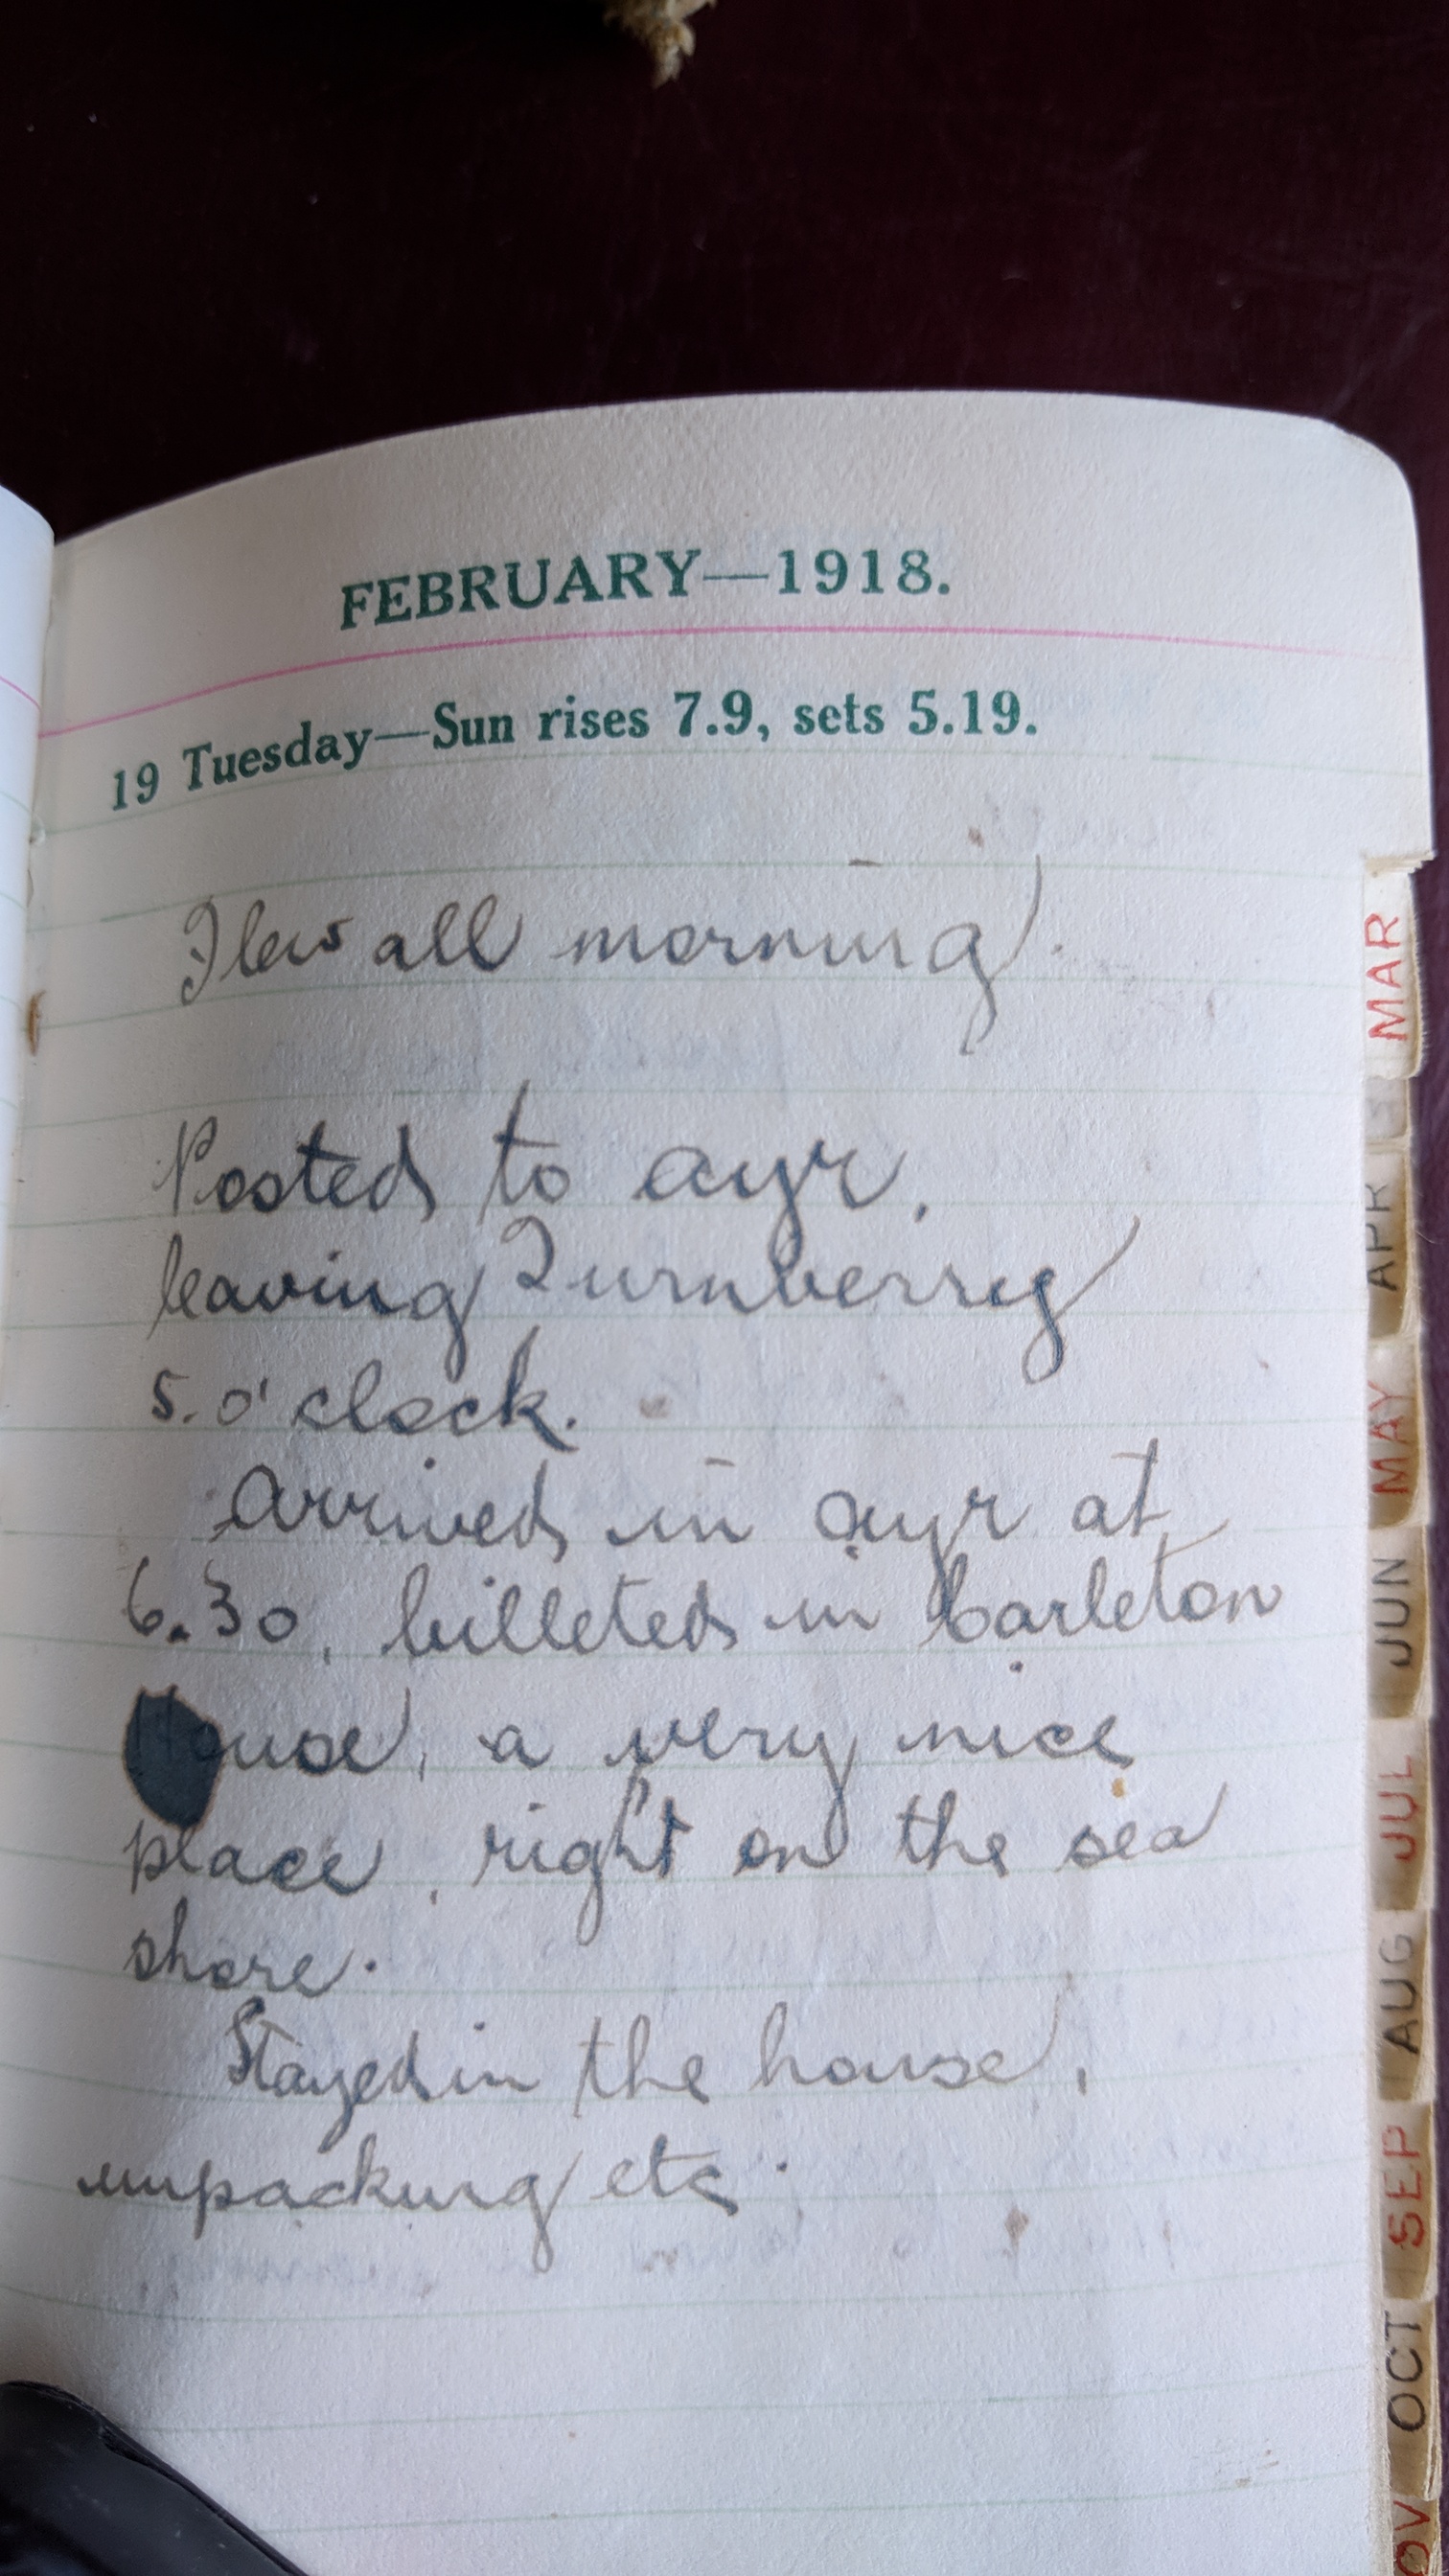 FEBRUARY—1918.
19 Tuesday—Sun rises 7.9, sets 5.19.
Flew all morning.
Posted to ayr,
leaving Turnberry
5. o'clock.
Arrived in ayr at
6.30, billeted in Carleton
House, a very nice
place, right on the sea
shore.
Stayed in the house,
unpacking etc.
MAR
APR
MAY
JUN
JUL
AUG
SEP
OCT
OV